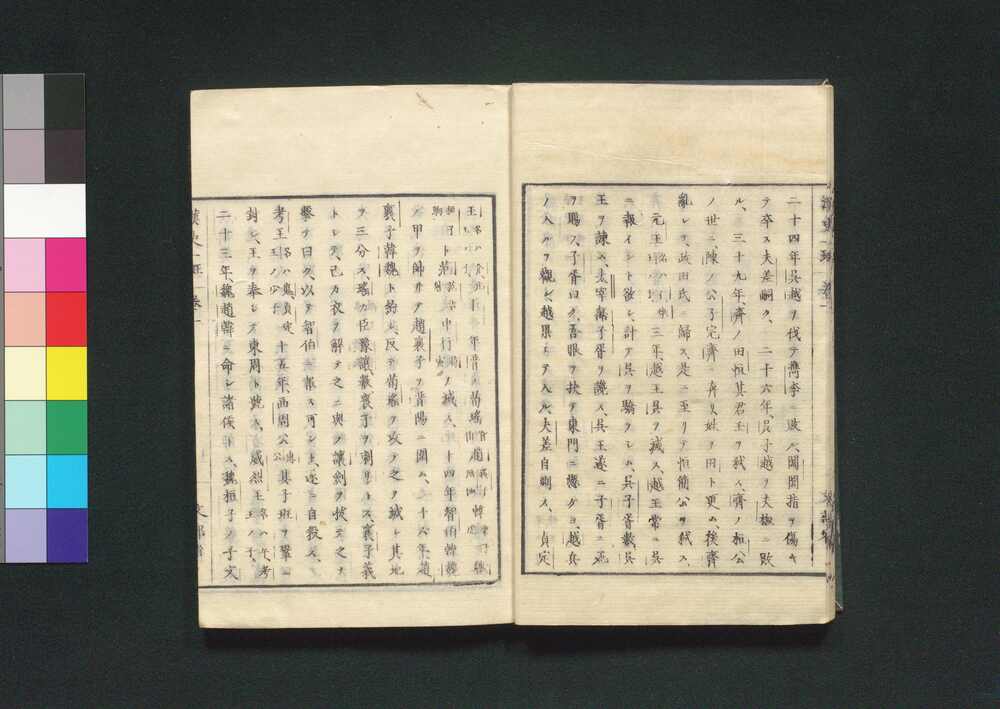 二十四年、吳越ヲ伐テ檇李ニ敗ル、闔閭指ヲ傷キ
テ卒ス夫差嗣ク、二十六年、吳子越ヲ夫椒ニ敗
ル、三十九年、齊ノ田恒其君王ヲ弑ス、齊ノ桓公
ノ世ニ、陳ノ公子完齊ニ奔リ姓ヲ田ト更ム、後齊
亂レテ、政田氏ニ歸ス、是ニ至リテ恒簡公ヲ弑ス、
元王 三年、越王吳ヲ滅ス、越王常ニ吳
ニ報イント欲シ、計テ吳ヲ驕ラシム、吳子胥數吳
王ヲ諫ム、太宰嚭子胥ヲ讒ス、吳王遂ニ子胥ニ死
ヲ賜フ、子胥曰ク、吾眼ヲ抉テ東門ニ懸ケヨ、越兵
ノ入ルヲ觀ン越果シテ入ル、夫差自剄ス、貞定
王 年晉 荀瑤
中行 ノ滅ス、十四年智伯韓魏
ノ甲ヲ帥井テ趙襄子ヲ晉陽ニ圍ム、十六年、趙
襄子韓魏ト約シ、反テ荀瑤ヲ攻テ之ヲ滅シ其地
ヲ三分ス、瑤カ臣豫讓數襄子ヲ刺 ス、襄子義
トシテ、己カ衣ヲ解テ之ニ與フ讓劍ヲ拔テ之ヲ
擊テ曰ク、以テ智伯ニ報ス可シト、遂ニ自殺ス、
考王 十五年、西周公 其子班ヲ鞏ニ
封シ、王ヲ奉シテ東周ト號ス、威烈王 名ハ午、考王ノ子、
二十三年、魏趙韓ニ命シ諸侯 ス、魏桓子ノ子文